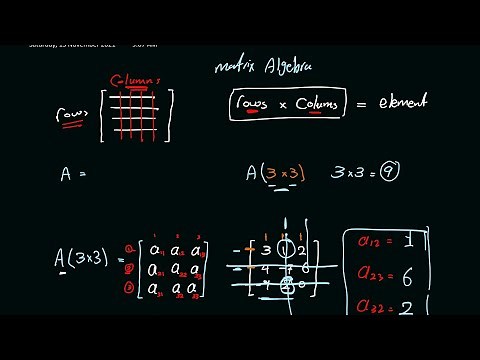 Saturday, 13 November 2021
matrix Algebra
Columns
rows
rows x Colums = element
A =
A(3x3) 3x3 = 9
A(3x3) =
1 2 3
1 a11 a12 a13
2 a21 a22 a23
3 a31 a32 a33
3 1 2
a12 = 1
a23 = 6
a32 = 2